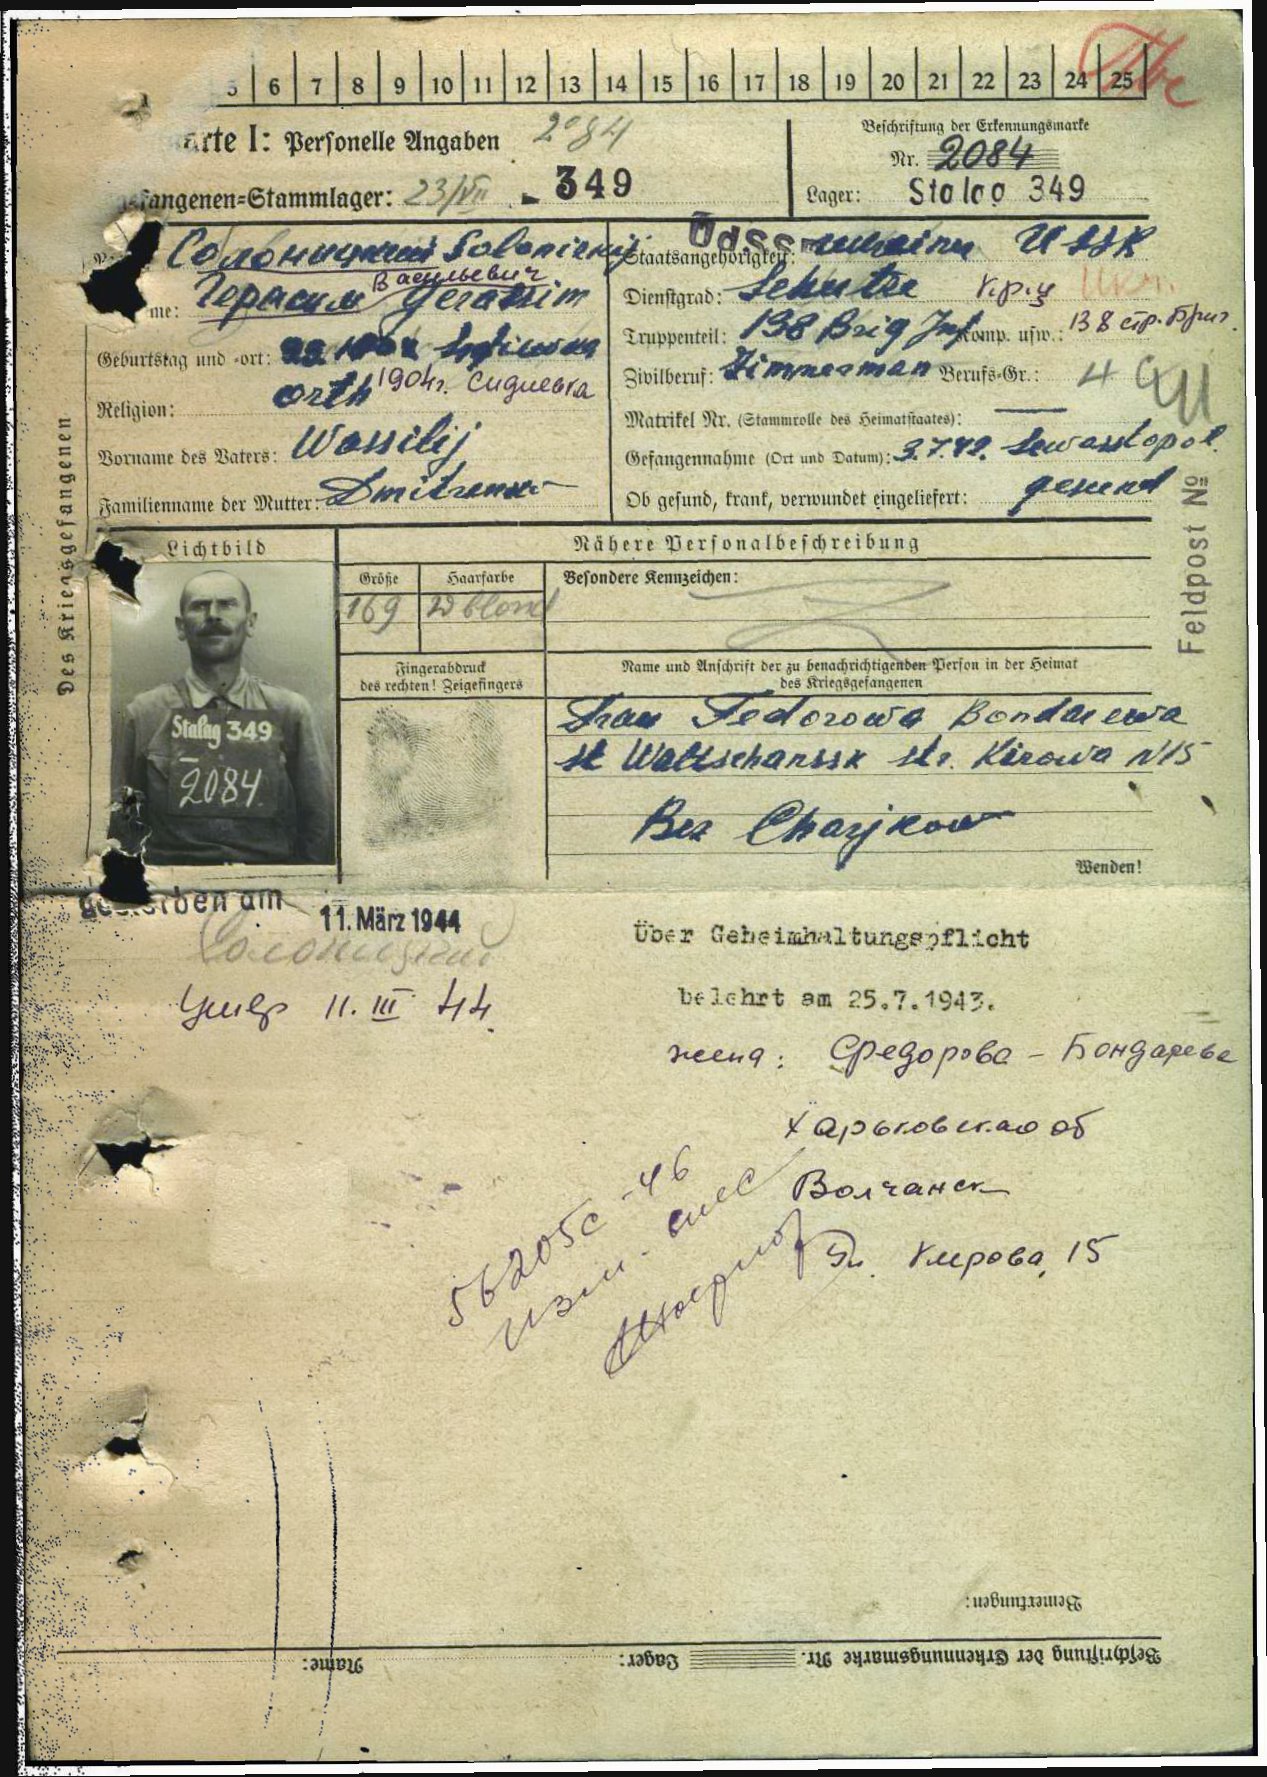 5 6 7 8 9 10 11 12 13 14 15 16 17 18 19 20 21 22 23 24 25
arte I: Personelle Angaben 2084
Beschriftung der Erkennungsmarke
Nr. 2084
fangenen=Stammlager: 23/VII - 349
Lager: Stalag 349
Солоницкий Solonickij
Staatsangehörigkeit: UdSSR USSR
Васильевич
me: Герасим Gerassim
Dienstgrad: Schutze кр-ц Укр.
Geburtstag und -ort:
Truppenteil: 138 Brig Inf Komp. usw.: 138 стр. бриг.
orth 1904г. Сидиевка
Zivilberuf: Zimmerman Berufs-Gr.: 4
Religion:
Matrikel Nr. (Stammrolle des Heimatstaates): —
Vorname des Vaters: Wassilij
Gefangennahme (Ort und Datum): 3.7.42. Sewastopol
Familienname der Mutter:
Ob gesund, krank, verwundet eingeliefert: gesund
Des Kriegsgefangenen
Feldpost №
Lichtbild
Nähere Personalbeschreibung
Größe Haarfarbe Besondere Kennzeichen:
169 blond
Fingerabdruck
des rechten! Zeigefingers
Name und Anschrift der zu benachrichtigenden Person in der Heimat
des Kriegsgefangenen
Stalag 349
2084
Frau Fedorowa Bondarewa
st Woltschanssk str. Kirowa N15
Bez Charjkow
Wenden!
gestorben am 11. März 1944
Солоницкий
Умер 11. III 44.
Über Geheimhaltungspflicht
belehrt am 25.7.1943.
жена: Федорова - Бондарева
Харьковская об
Волчанск
Ул. Кирова, 15
56205с-46
Bemerkungen:
Beschriftung der Erkennungsmarke Nr. Lager: Name: